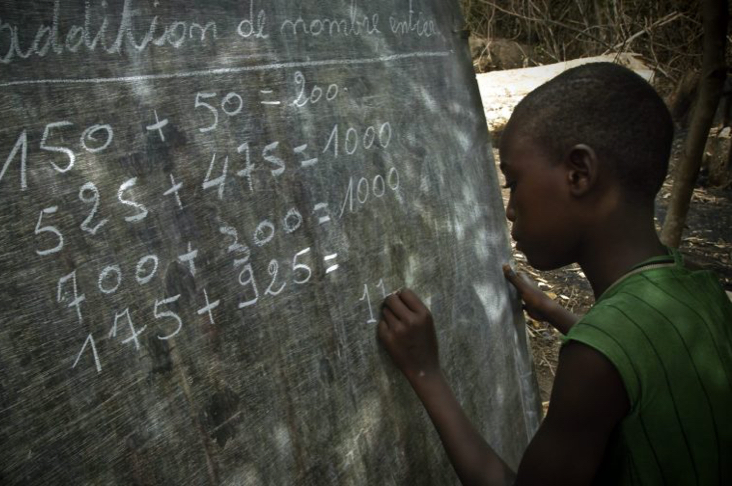 addition de nombre entier
150 + 50 = 200
525 + 475 = 1000
700 + 300 = 1000
175 + 925 =
11